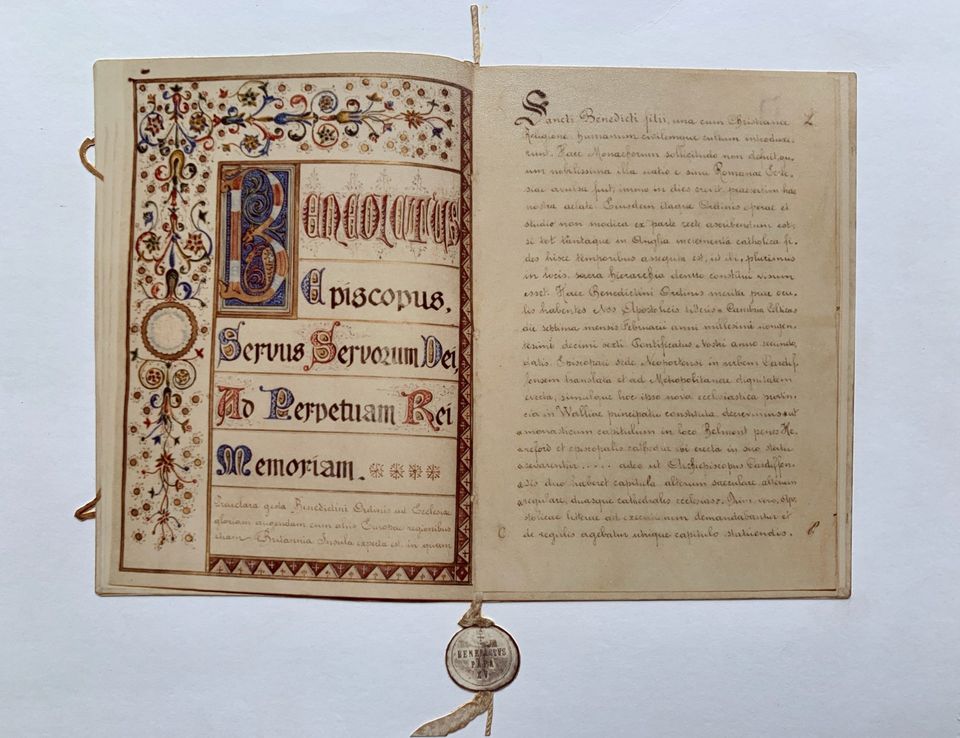 Benedictus
Episcopus,
Servus Servorum Dei,
Ad Perpetuam Rei
Memoriam.
Praeclara gesta Benedictini Ordinis ad Ecclesiae
gloriam augendam cum aliis Europae regionibus
etiam Britannia Insula experta est, in quam
Sancti Benedicti filii, una cum Christiana
Religione, humanum civilemque cultum introduxe,
runt. Haec Monachorum sollicitudo non defuit, qu,
um nobilissima illa natio e sinu Romanae Eccle,
siae avulsa fuit, immo in dies crevit, praesertim hac
nostra aetate. Eiusdem itaque Ordinis operae et
studio non modica ex parte recte ascribendum est,
si tot tantaque in Anglia incrementa catholica fi,
des hisce temporibus assequuta est, ut ibi, plurimis
in locis, sacra hierarchia denuo constitui visum
esset. Haec Benedictini Ordinis merita prae ocu,
lis habentes Nos Apostolicis literis « Cambria Celtica »
die septima mensis Februarii anni millesimi nongen,
tesimi decimi sexti Pontificatus Nostri anno secundo,
datis, Episcopali sede Neoportensi in urbem Cardif,
fensem translata et ad Metropolitanam dignitatem
erecta, simulque hoc ipso nova ecclesiastica provin,
cia in Walliae principatu constituta, decrevimus ut
monasticum capitulum in loco Belmont penes He,
reford et episcopalis cathedra ibi erecta in suo statu
adservarentur ..... adeo ut Archiepiscopus Cardiffen,
sis duo haberet capitula alterum saeculare, alterum
regulare, duasque cathedrales ecclesias. Quum vero, Apo,
stolicae literae ad executionem demandabantur et
de regulis agebatur utrique capitulo statuendis,
BENEDICTVS
PAPA
XV